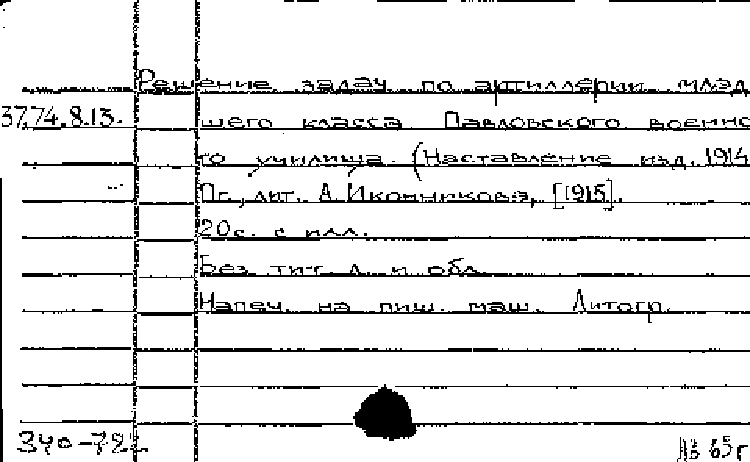 Решение задач по артиллерии млад
37.74.8.13. шего класса Павловского военно
го училища. (Наставление изд. 1914
Пг., лит. А. Иконникова, [1915].
20с. с илл.
Без тит. л. и обл.
Напеч. на пиш. маш. Литогр.
340-782
65г